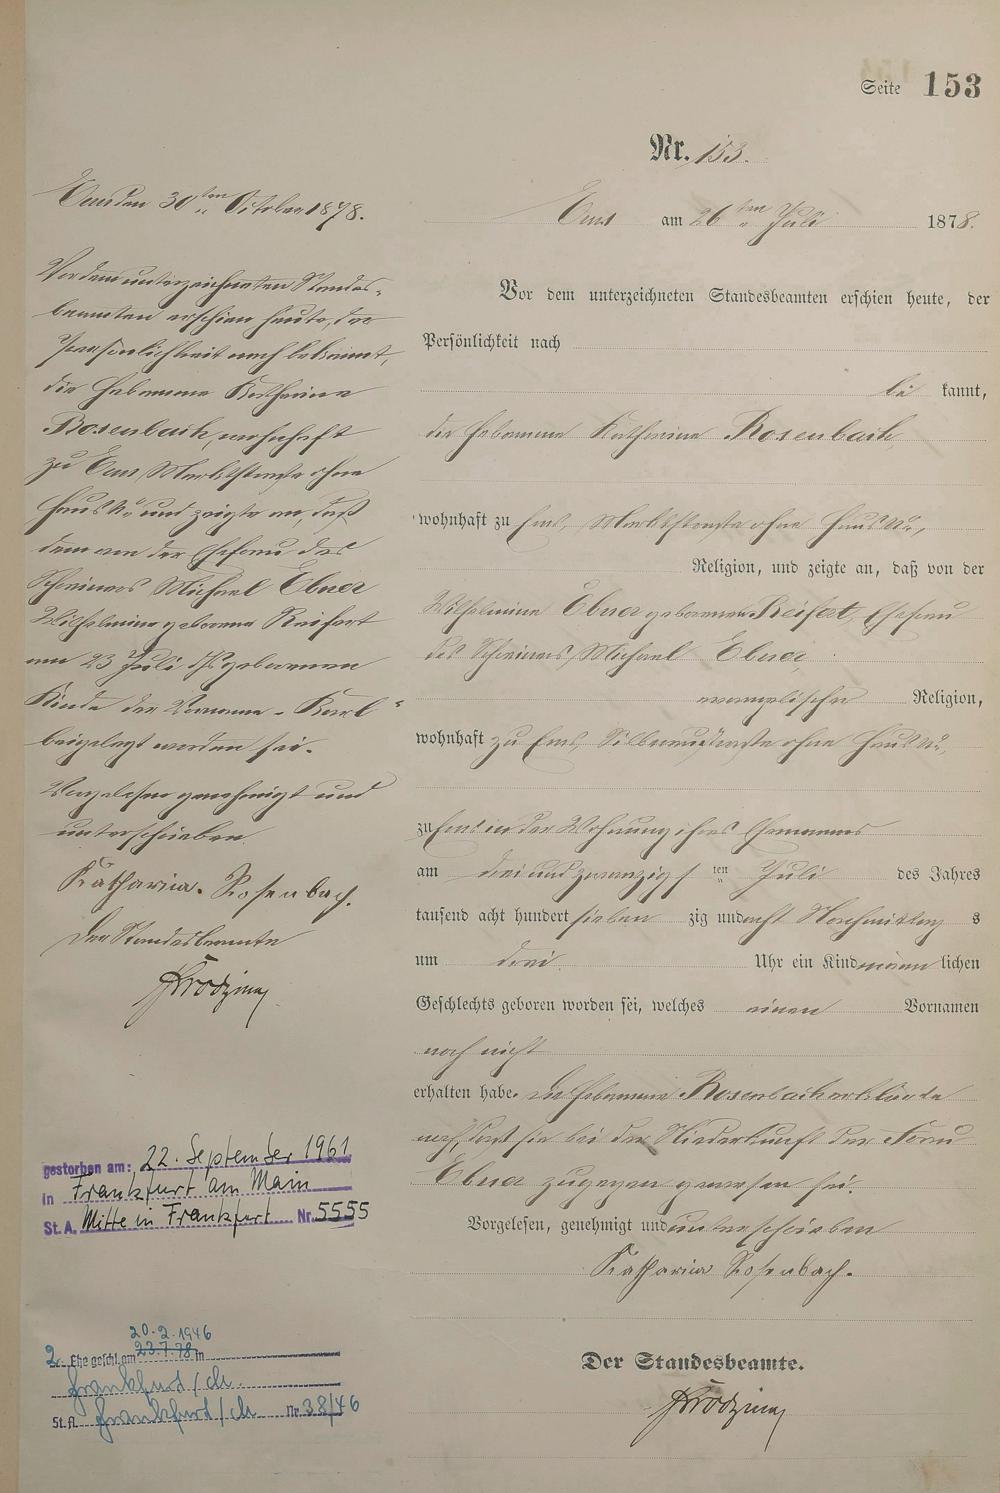 Seite 153
Nr. 153.
Ems am 26ten Juli 1878.
Vor dem unterzeichneten Standesbeamten erschien heute, der
Persönlichkeit nach
be kannt,
die Hebamme Katharina Rosenbach,
wohnhaft zu Ems, Marktstraße ohne Haus No,
Religion, und zeigte an, daß von der
Wilhelmine Ebner geborenen Reifert, Ehefrau
des Schreiners Michael Ebner,
evangelischer Religion,
wohnhaft zu Ems, Silberaustraße ohne Haus No,
zu Ems in der Wohnung ihres Ehemannes
am drei und zwanzigsten Juli des Jahres
tausend acht hundert sieben zig und acht Nachmittag s
um drei Uhr ein Kind männlichen
Geschlechts geboren worden sei, welches einen Vornamen
noch nicht
erhalten habe. Die Hebamme Rosenbach erklärte
noch, daß sie bei der Niederkunft der Frau
Ebner zugegen gewesen sei.
Vorgelesen, genehmigt und unterschrieben
Katharina Rosenbach.
Der Standesbeamte.
Ems den 30ten October 1878.
Vor dem unterzeichneten Standes-
beamten erschien heute, der
Persönlichkeit nach bekannt,
die Hebamme Katharina
Rosenbach, wohnhaft
zu Ems, Marktstraße ohne
Haus No und zeigte an, daß
dem von der Ehefrau des
Schreiners Michael Ebner
Wilhelmine geborene Reifert
am 23 Juli geborenen
Kinde der Vorname - Karl -
beigelegt worden sei.
Vorgelesen genehmigt und
unterschrieben
Katharina. Rosenbach.
Der Standesbeamte
gestorben am: 22. September 1961
in Frankfurt am Main
St. A. Mitte in Frankfurt Nr. 5555
20.2.1946
2. Ehe geschl. am 23.7.78 in
Frankfurt/M.
St.A. Frankfurt/M. Nr 38/46